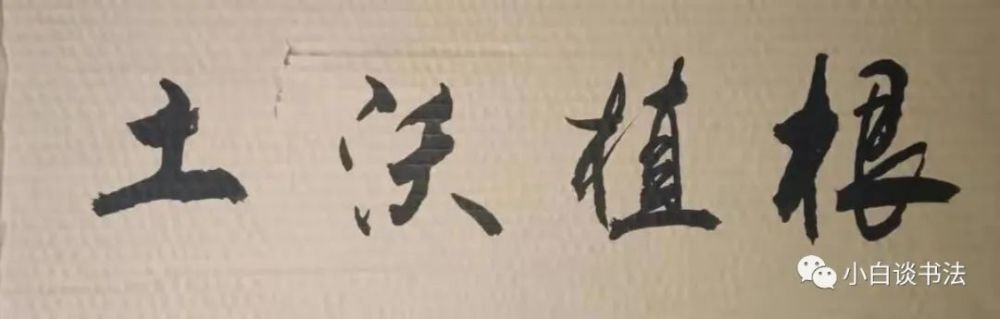 根植沃土
小白谈书法